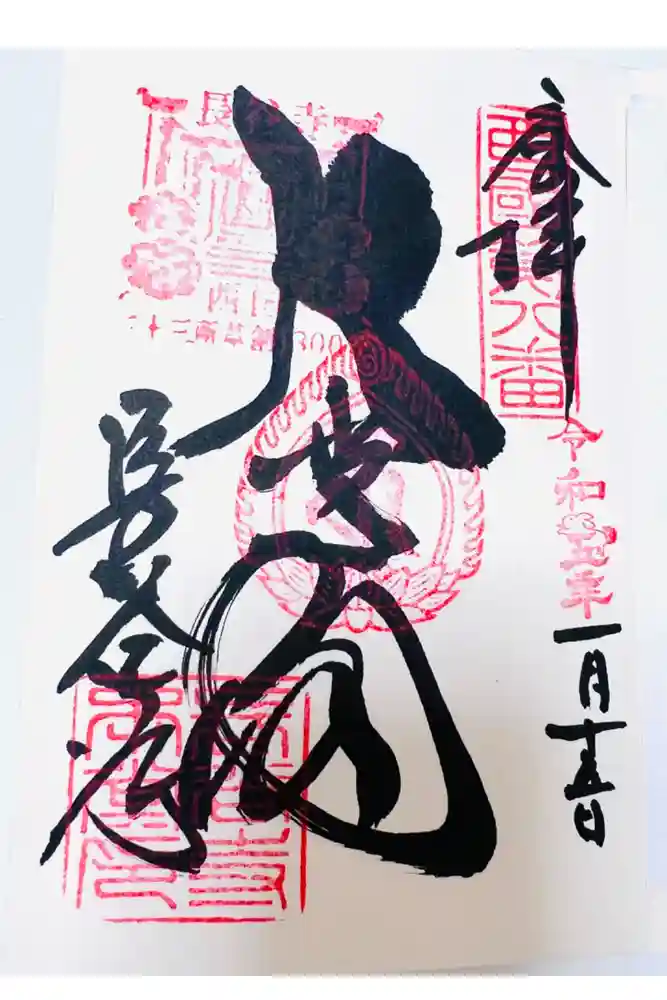 奉拝
西国第八番
令和五年
一月十五日
長谷寺
西国
三十三所草創1300
大悲閣
長谷寺